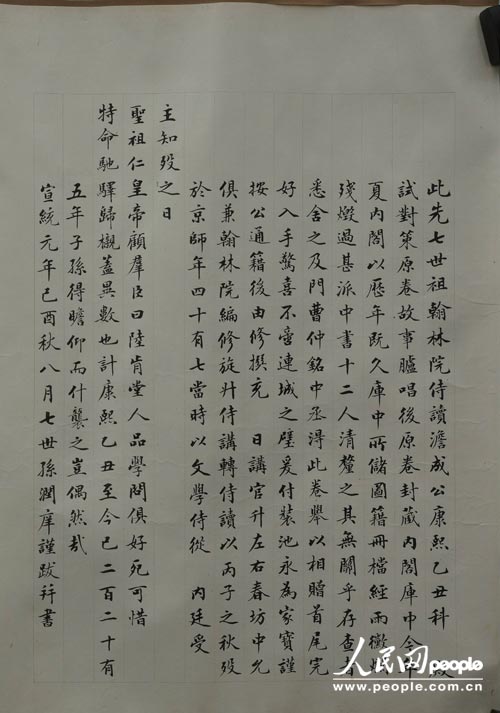 此先七世祖翰林院侍讀澹成公康熙乙丑科 殿
試對策原卷故事臚唱後原卷封藏内閣庫中今年
夏内閣以歷年既久庫中所儲圖籍冊檔經雨黴爛
殘燬過甚派中書十二人清釐之其無關乎存查者
悉舍之及門曹仲銘中丞淂此卷舉以相贈首尾完
好入手驚喜不啻連城之璧爰付裝池永為家寶謹
按公通籍後由修撰充 日講官升左右春坊中允
俱兼翰林院編修旋升侍講轉侍讀以丙子之秋歿
於京師年四十有七當時以文學侍從 内廷受
主知歿之日
聖祖仁皇帝顧羣臣曰陸肯堂人品學問俱好死可惜
特命馳驛歸櫬蓋異數也計康熙乙丑至今已二百二十有
五年子孫得瞻仰而什襲之豈偶然哉
宣統元年己酉秋八月七世孫潤庠謹跋并書
人民网people
www.people.com.cn